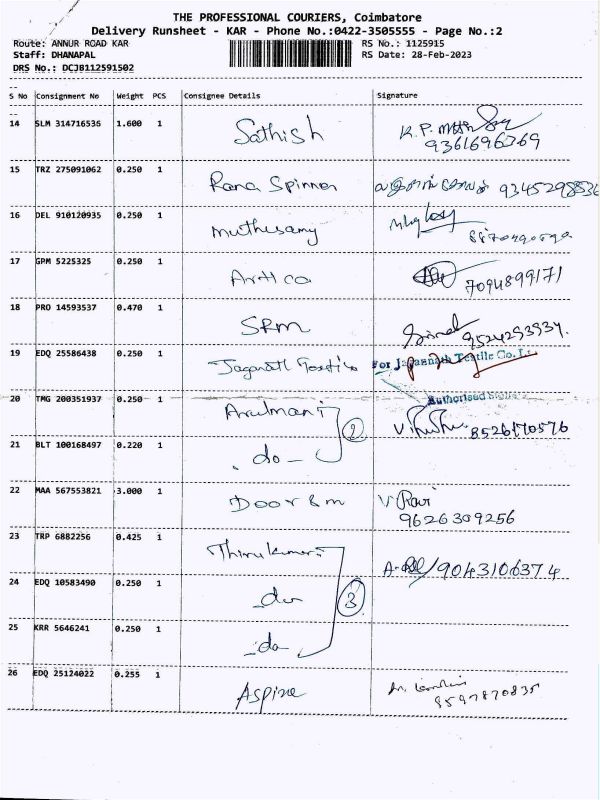 THE PROFESSIONAL COURIERS, Coimbatore
Delivery Runsheet - KAR - Phone No.:0422-3505555 - Page No.:2
Route: ANNUR ROAD KAR RS No.: 1125915
Staff: DHANAPAL RS Date: 28-Feb-2023
DRS No.: DCJB112591502
S No Consignment No Weight PCS Consignee Details Signature
14 SLM 314716536 1.600 1 Sathish K.P.
9361696769
15 TRZ 275091062 0.250 1 Rana Spinner
16 DEL 910120935 0.250 1 Muthusamy
17 GPM 5225325 0.250 1 7094899171
18 PRO 14593537 0.470 1 SRM
9524293934.
19 EDQ 25586438 0.250 1 Jaganath For Jagannath Textile Co. Lt
Authorised
20 TMG 200351937 0.250 1 Arulmani
8526170576
2
21 BLT 100168497 0.220 1 - do -
22 MAA 567553821 3.000 1 Door & m V Ravi
9626309256
23 TRP 6882256 0.425 1 Thirukumaran 9043106374
24 EDQ 10583490 0.250 1 - do 3
25 KRR 5646241 0.250 1 - do -
26 EDQ 25124022 0.255 1 Aspire
9597870835